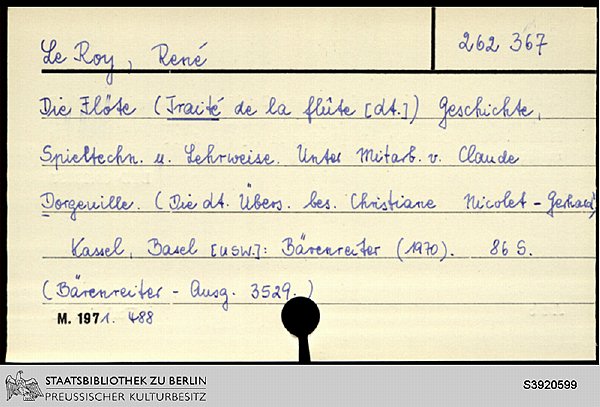 Le Roy, René
262 367
Die Flöte (Traité de la flûte [dt.]) Geschichte,
Spieltechn. u. Lehrweise. Unter Mitarb. v. Claude
Dorgeuille. (Die dt. Übers. bes. Christiane Nicolet-Gerhard)
Kassel, Basel [usw.]: Bärenreiter (1970). 86 S.
(Bärenreiter-Ausg. 3529.)
M. 1971. 488
STAATSBIBLIOTHEK ZU BERLIN
PREUSSISCHER KULTURBESITZ
S3920599